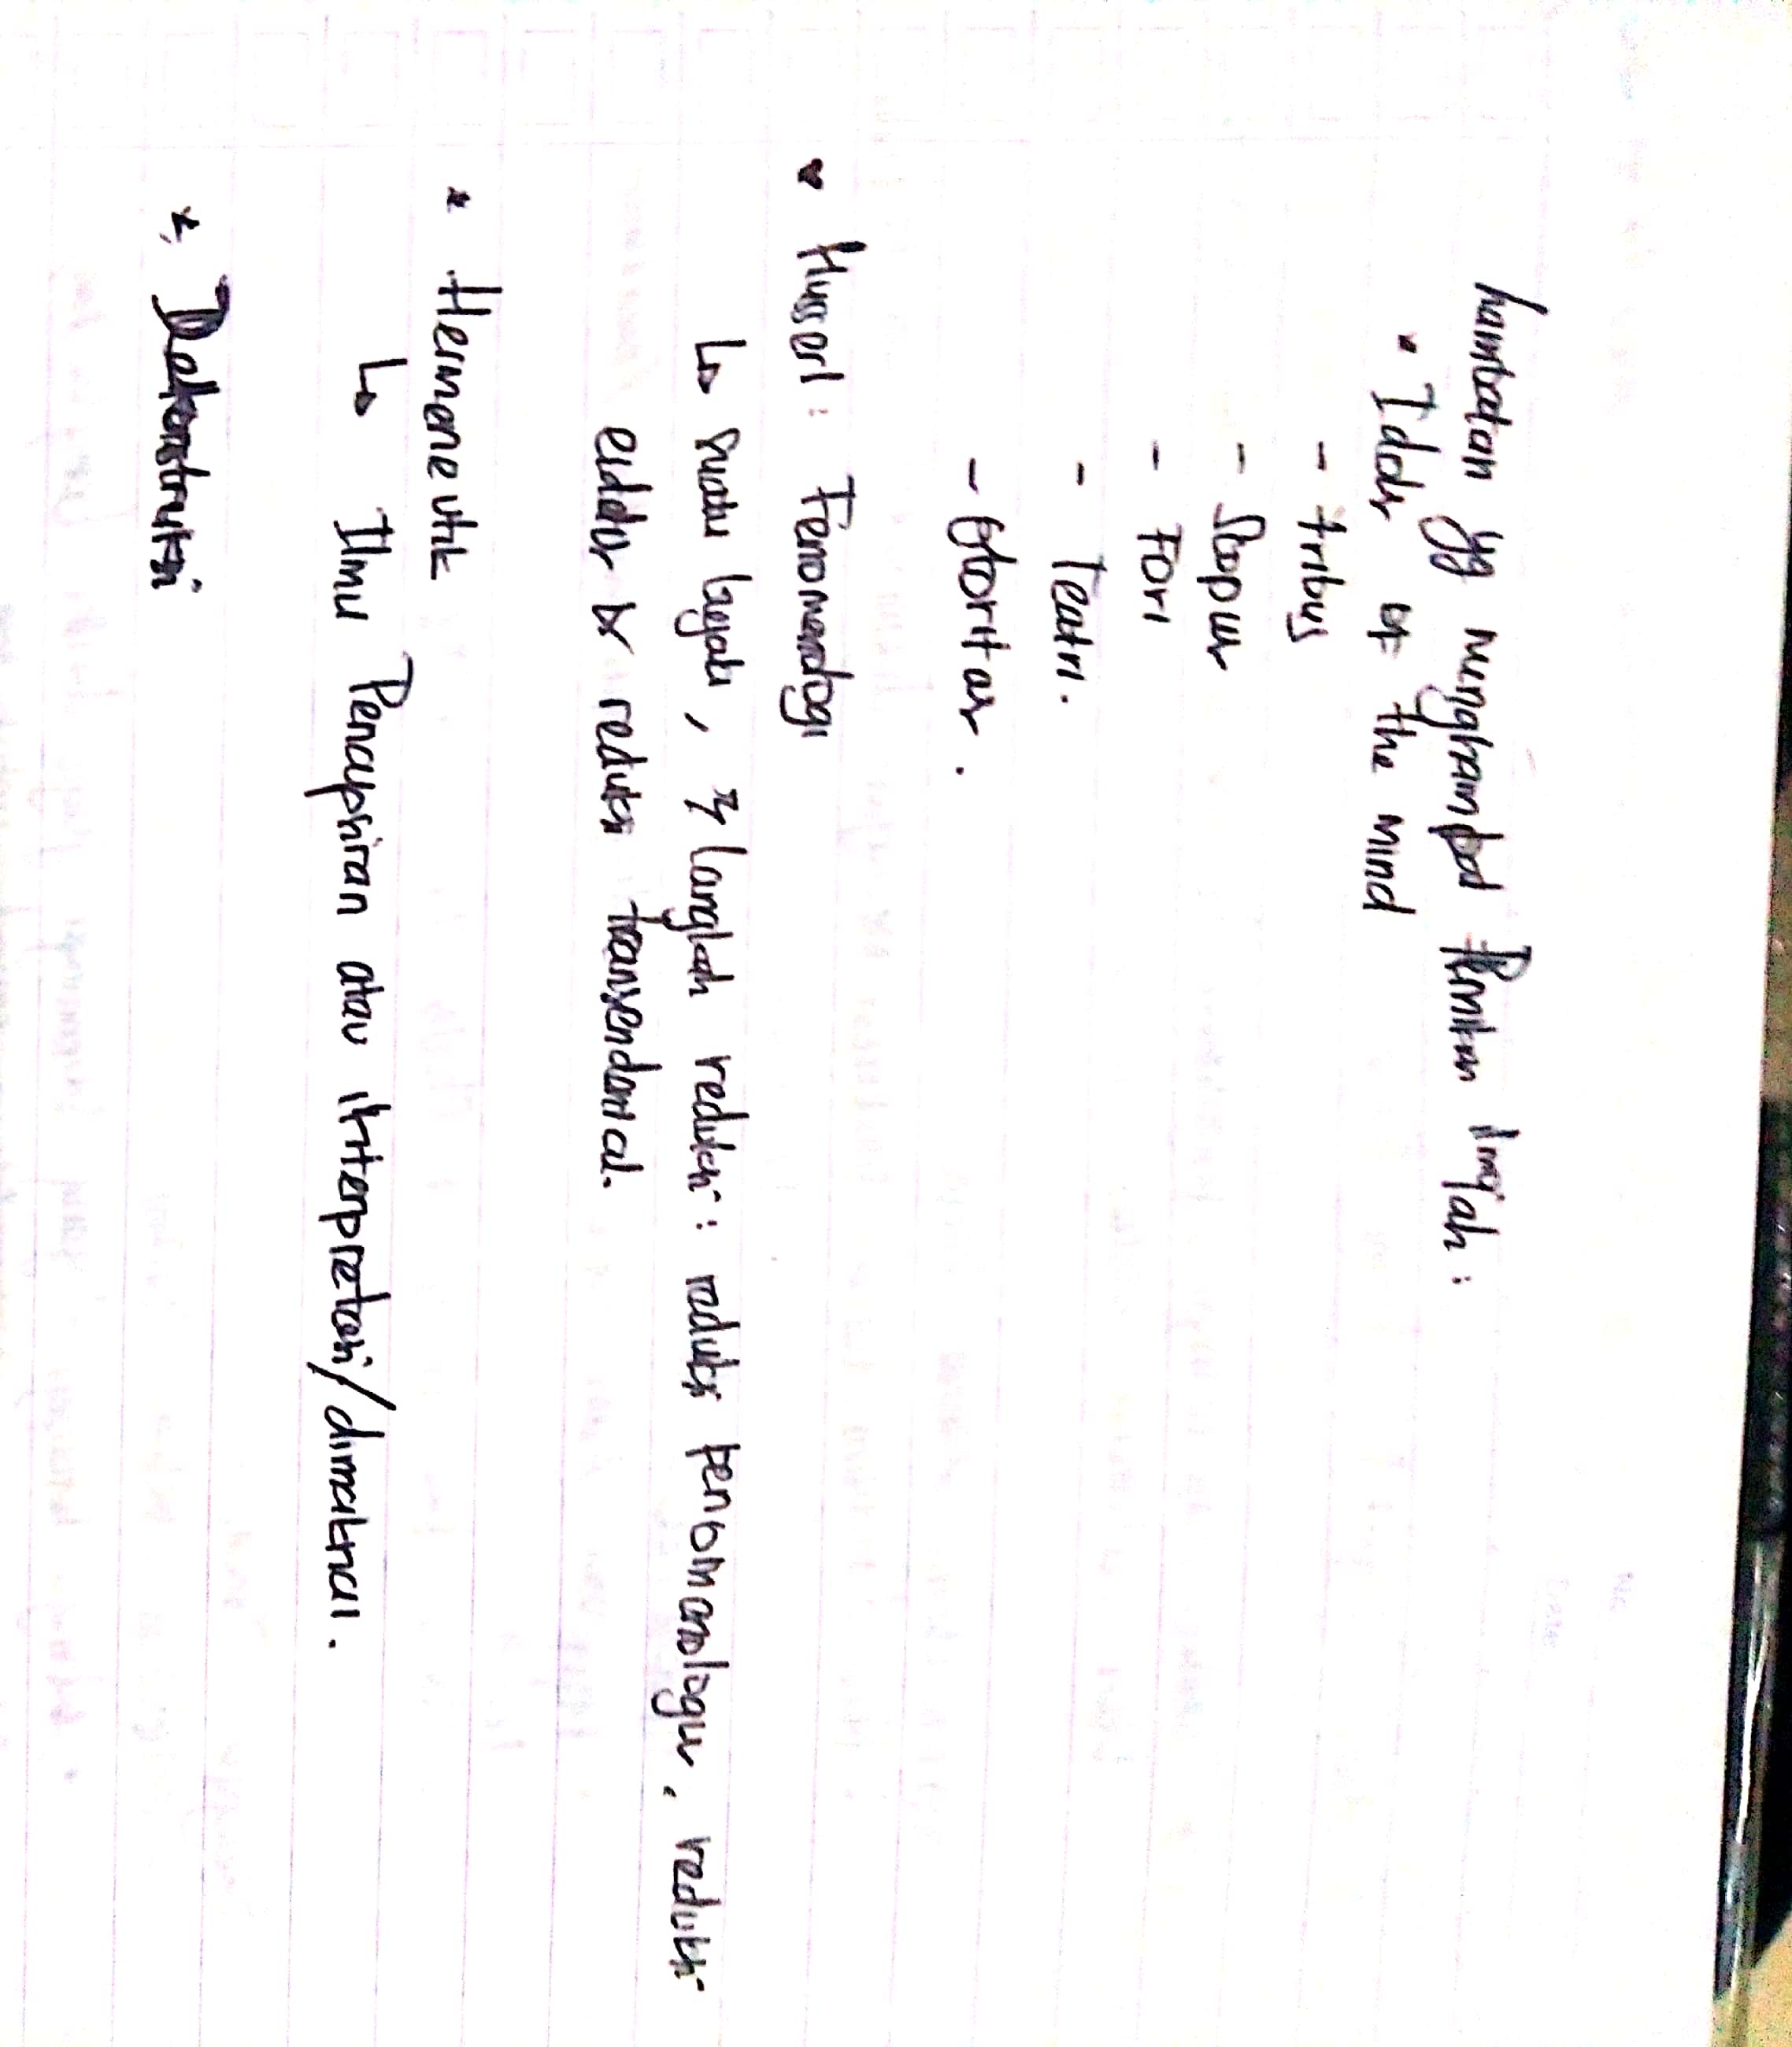 hambatan yg menghambat Pemikiran Ilmiah :
• Idols of the mind
- tribus
- Spesus
- Fori
- Teatri.
- Otoritas.
• Husserl : Fenomenologi
↳ suatu gejala, 3 langkah reduksi : reduksi fenomenologis, reduksi
eidetis & reduksi transendental.
* Hermeneutik
↳ Ilmu Penafsiran atau interpretasi/dimaknai.
* Dekonstruksi